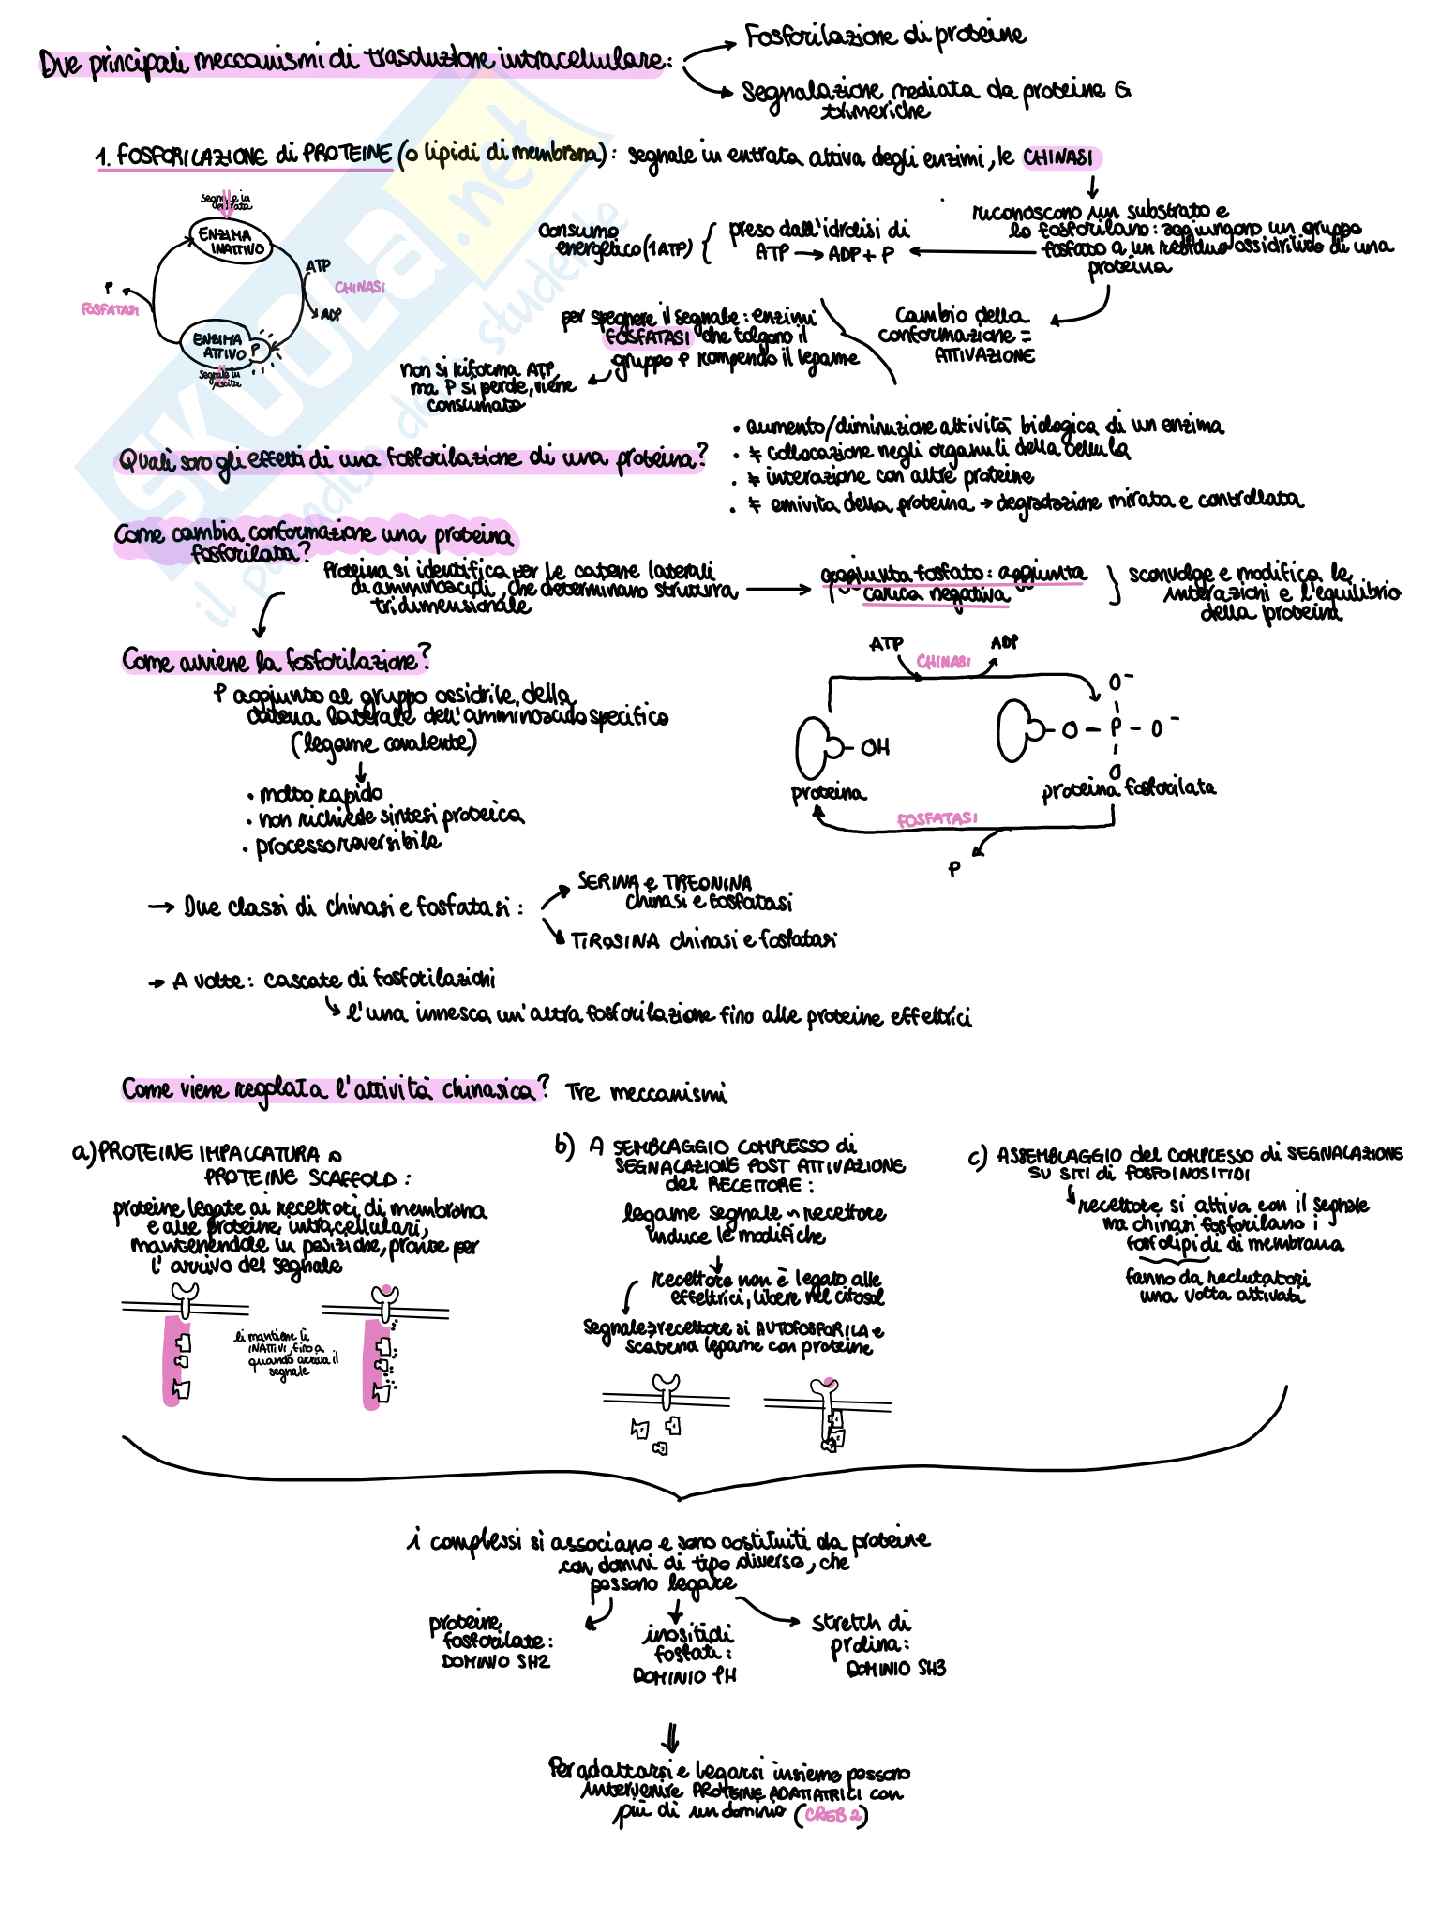 Due principali meccanismi di trasduzione intracellulare:
Fosforilazione di proteine
Segnalazione mediata da proteine G
trimeriche
1. FOSFORILAZIONE di PROTEINE (o lipidi di membrana): segnale in entrata attiva degli enzimi, le CHINASI
riconoscono un substrato e
lo fosforilano: aggiungono un gruppo
fosfato a un residuo ossidrilico di una
proteina
consumo
energetico (1 ATP)
preso dall'idrolisi di
ATP → ADP + P
segnale in
entrata
ENZIMA
INATTIVO
ATP
CHINASI
ADP
P
FOSFATASI
ENZIMA
ATTIVO
P
segnale in
uscita
Cambio della
conformazione =
ATTIVAZIONE
per spegnere il segnale: enzimi
FOSFATASI che tolgono il
gruppo P rompendo il legame
non si riforma ATP,
ma P si perde, viene
consumato
Quali sono gli effetti di una fosforilazione di una proteina?
• aumento/diminuzione attività biologica di un enzima
• ≠ collocazione negli organuli della cellula
• ≠ interazione con altre proteine
• ≠ emivita della proteina → degradazione mirata e controllata
Come cambia conformazione una proteina
fosforilata?
Proteina si identifica per le catene laterali
di amminoacidi, che determinano struttura
tridimensionale
aggiunta fosfato: aggiunta
carica negativa
sconvolge e modifica le
interazioni e l'equilibrio
della proteina
Come avviene la fosforilazione?
P aggiunto al gruppo ossidrile della
catena laterale dell'amminoacido specifico
(legame covalente)
• molto rapido
• non richiede sintesi proteica
• processo reversibile
ATP
CHINASI
ADP
OH
proteina
O⁻
O - P - O⁻
O
proteina fosforilata
FOSFATASI
P
→ Due classi di chinasi e fosfatasi:
SERINA e TREONINA
chinasi e fosfatasi
TIROSINA chinasi e fosfatasi
→ A volte: cascate di fosforilazioni
↳ l'una innesca un'altra fosforilazione fino alle proteine effettrici
Come viene regolata l'attività chinasica? Tre meccanismi
a) PROTEINE IMPALCATURA o
PROTEINE SCAFFOLD:
proteine legate ai recettori di membrana
e alle proteine intracellulari,
mantenendole in posizione, pronte per
l'arrivo del segnale
li mantiene lì
INATTIVI, fino a
quando arriva il
segnale
b) ASSEMBLAGGIO COMPLESSO di
SEGNALAZIONE POST ATTIVAZIONE
del RECETTORE:
legame segnale ~ recettore
induce le modifiche
recettore non è legato alle
effettrici, libere nel citosol
segnale → recettore si AUTOFOSFORILA e
scatena legame con proteine
c) ASSEMBLAGGIO del COMPLESSO di SEGNALAZIONE
SU SITI di FOSFOINOSITIDI
recettore si attiva con il segnale
ma chinasi fosforilano i
fosfolipidi di membrana
fanno da reclutatori
una volta attivati
i complessi si associano e sono costituiti da proteine
con domini di tipo diverso, che
possono legare
proteine
fosforilate:
DOMINIO SH2
inositidi
fosfati:
DOMINIO PH
stretch di
prolina:
DOMINIO SH3
Per adattarsi e legarsi insieme possono
intervenire PROTEINE ADATTATRICI con
più di un dominio (CREB2)
SKUOLA.net
il paradiso dello studente